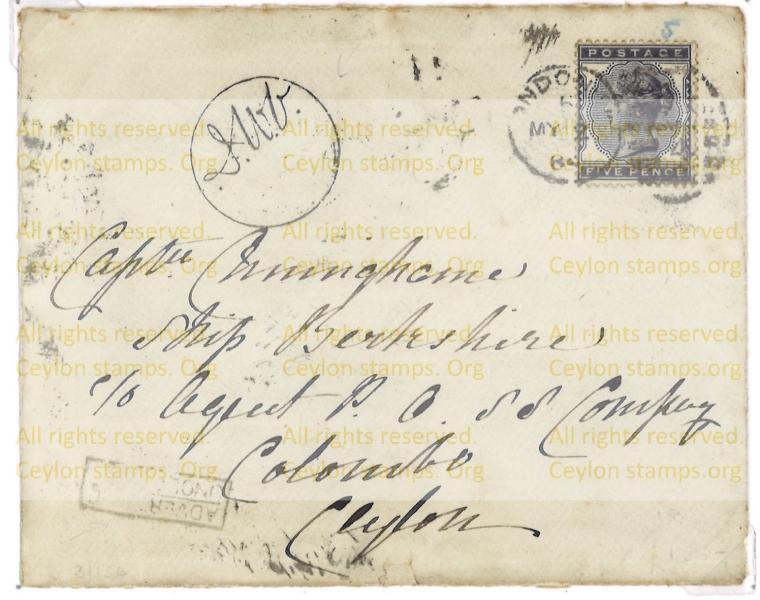 POSTAGE
FIVE PENCE
LONDON
MY
J.W.B.
Capt^n. Cuninghame
Ship Berkshire
c/o Agent P. O. SS Company
Colombo
Ceylon
ADVER
UNCL
All rights reserved. All rights reserved. All rights reserved.
Ceylon stamps. Org Ceylon stamps. Org Ceylon stamps. Org
All rights reserved. All rights reserved. All rights reserved.
Ceylon stamps.org Ceylon stamps.org Ceylon stamps.org
All rights reserved. All rights reserved. All rights reserved.
Ceylon stamps. Org Ceylon stamps. Org Ceylon stamps. Org
All rights reserved. All rights reserved. All rights reserved.
Ceylon stamps. Org Ceylon stamps. Org Ceylon stamps. Org